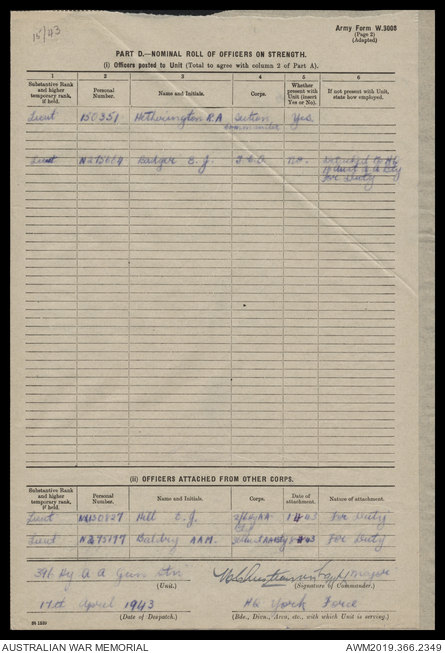 15/43
Army Form W.3008
(Page 2)
(Adapted)
PART D.—NOMINAL ROLL OF OFFICERS ON STRENGTH.
(i) Officers posted to Unit (Total to agree with column 2 of Part A).
1 2 3 4 5 6
Substantive Rank and higher temporary rank, if held. Personal Number. Name and Initials. Corps. Whether present with Unit (insert Yes or No). If not present with Unit, state how employed.
Lieut 150351 Hetherington R.A Section Yes.
Commander
Lieut Badger E. J. No. Detached to HQ
Aust A A Bty
For Duty
(ii) OFFICERS ATTACHED FROM OTHER CORPS.
Substantive Rank and higher temporary rank, if held. Personal Number. Name and Initials. Corps. Date of attachment. Nature of attachment.
Lieut Hill E. J. For Duty
Lieut Baldry A A M. For Duty
396 Hy A A Gun Stn Major
(Unit.) (Signature of Commander.)
17th April 1943 HQ York Force
(Date of Despatch.) (Bde., Divn., Area, etc., with which Unit is serving.)
AUSTRALIAN WAR MEMORIAL AWM2019.366.2349